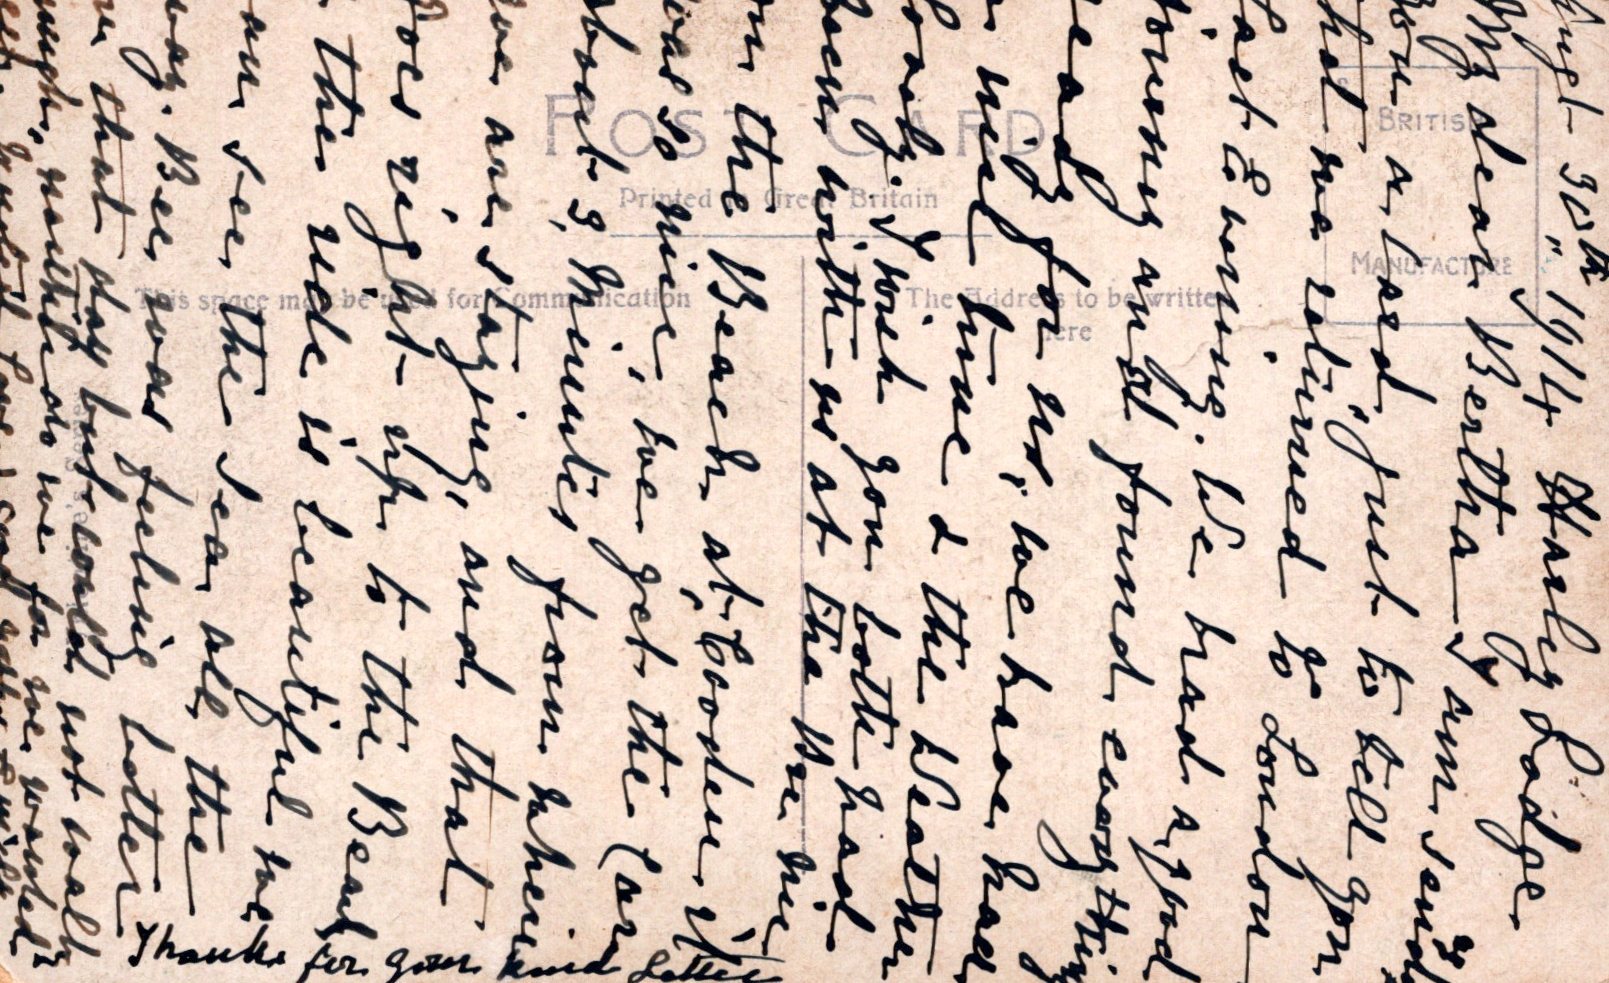 Augt 31st 1914 Hanley Lodge
My dear Bertha I am sending
you a card, just to tell you
that we returned to London
last Evening. We had a good
Journey and found everything
ready for us, we have had
a nice time & the weather
lovely. I wish you both had
been with us at the
on the Beach at Cooden it
was so nice, we get the Car
about 3 minutes from where
we are staying, and that
goes right up to the Beach
& the ride is beautiful we
can see the sea all the
way. Bee was feeling better
that day but could not walk
much, neither do we for we wanted
Thanks for your kind Letter
POST CARD
Printed in Great Britain
This space may be used for Communication
The Address to be written
here
BRITISH
MANUFACTURE